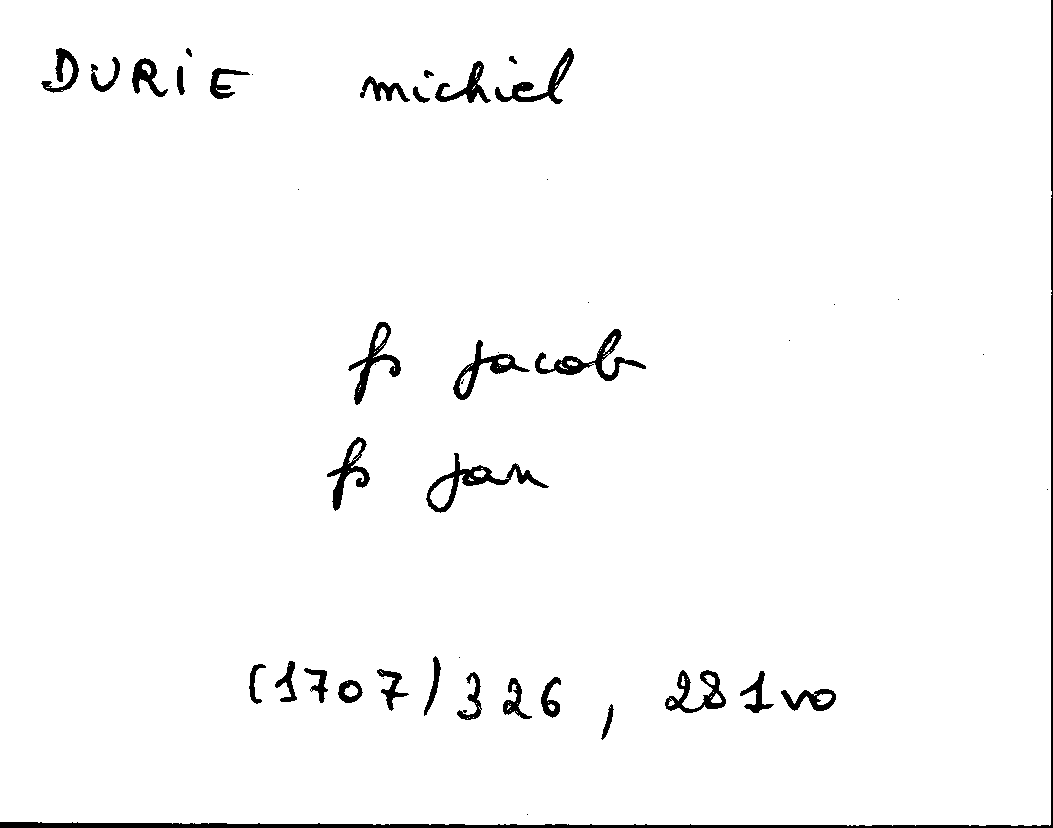 DURIE michiel
fs jacob
fs jan
(1707) 326, 281vo